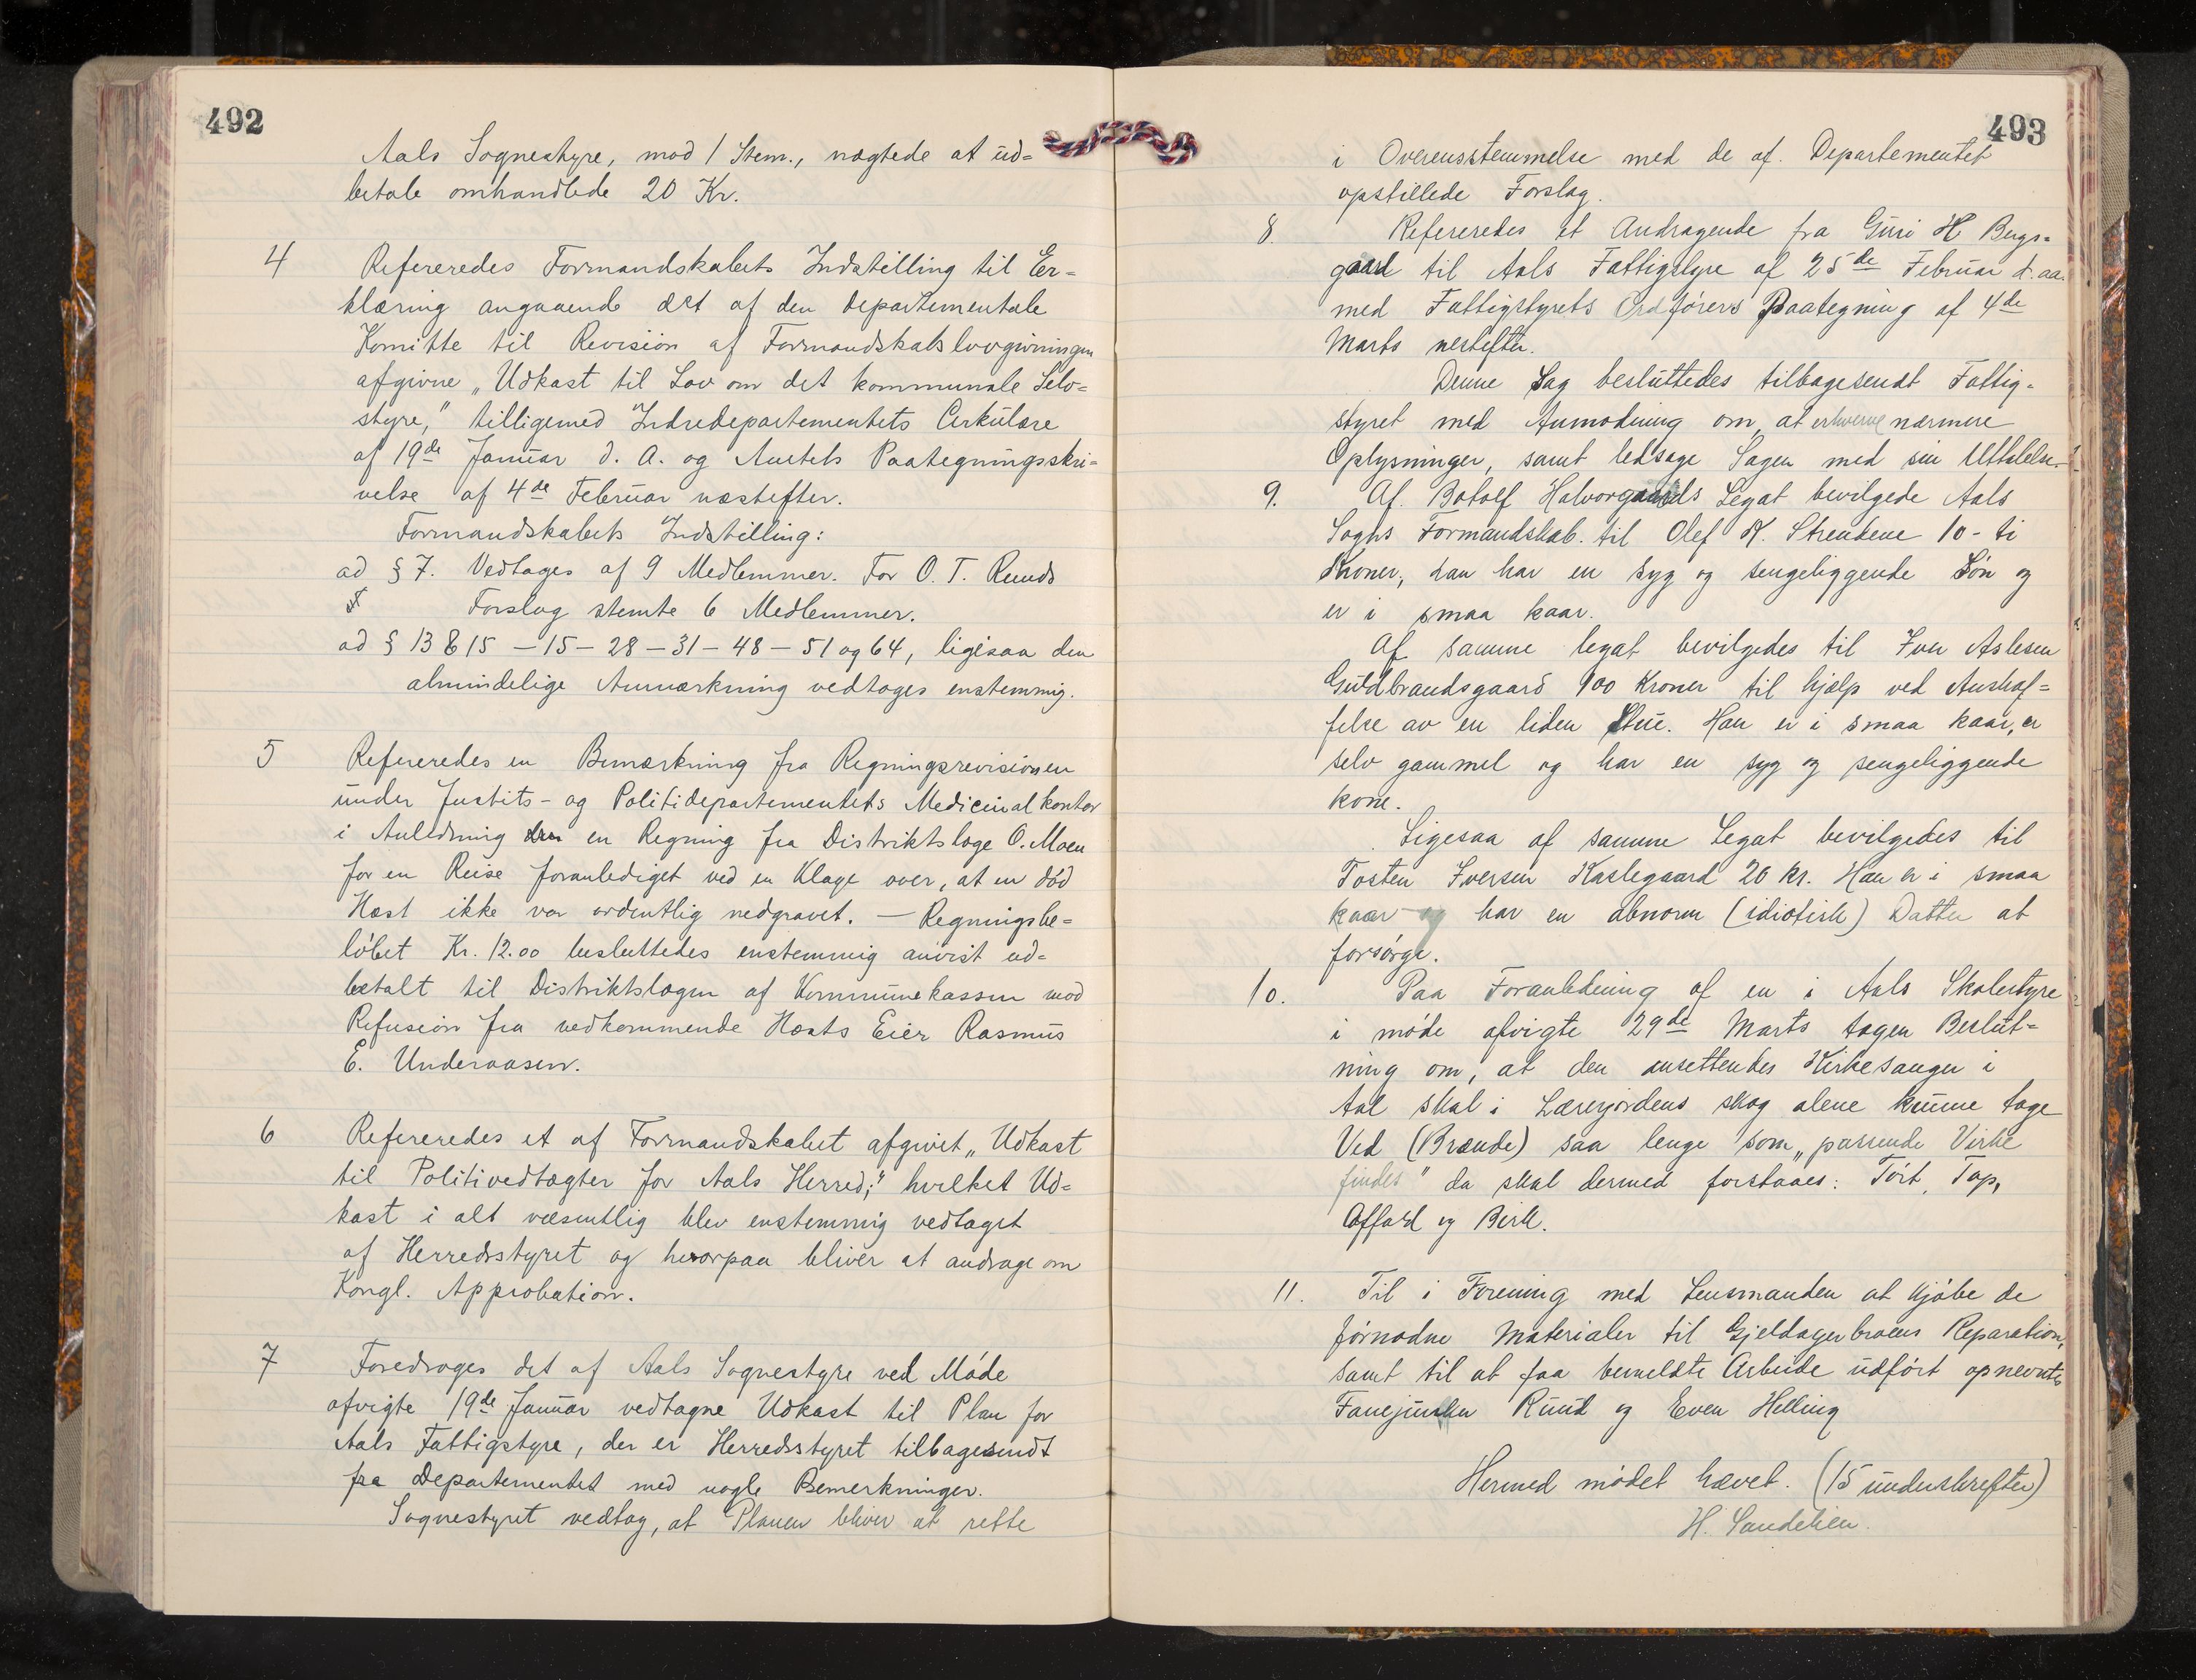 492
Aals Sognestyre, mod 1 Stem., nægtede at ud-
betale omhandlede 20 Kr.
4 Refereredes Formandskabets Indstilling til Er-
klæring angaaende det af den departementale
Komitte til Revision af Formandskabslovgivningen
afgivne „Udkast til Lov om det kommunale Selv-
styre," tilligemed Indredepartementets Cirkulære
af 19de Januar d. A. og Amtets Paategningsskri-
velse af 4de Februar næstefter.
Formandskabets Indstilling:
ad § 7. Vedtages af 9 Medlemmer. For O. T. Ruuds
Forslag stemte 6 Medlemmer.
ad § 13 & 15 – 15 – 28 – 31 – 48 – 51 og 64, ligesaa den
almindelige Anmærkning vedtages enstemmig.
5 Refereredes en Bemærkning fra Regningsrevisionen
under Justits- og Politidepartementets Medicinalkontor
i Anledning en Regning fra Distriktslæge O. Moen
for en Reise foranlediget ved en Klage over, at en død
Hest ikke var ordentlig nedgravet. — Regningsbe-
løbet Kr. 12.00 besluttedes enstemmig anvist ud-
betalt til Distriktslægen af Kommunekassen mod
Refusion fra vedkommende Hests Eier Rasmus
E. Underaasen.
6 Refereredes et af Formandskabet afgivet „Udkast
til Politivedtægter for Aals Herred;" hvilket Ud-
kast i alt væsentlig blev enstemmig vedtaget
af Herredsstyret og hvorpaa bliver at andrage om
Kongl. Approbation.
7 Foredroges det af Aals Sognestyre ved Møde
afvigte 19de Januar vedtagne Udkast til Plan for
Aals Fattigstyre, der er Herredsstyret tilbagesendt
fra Departementet med nogle Bemerkninger.
Sognestyret vedtog, at Planen bliver at rette
493
i Overensstemmelse med de af Departementet
opstillede Forslag.
8. Refereredes et Andragende fra Guri H Bergs-
gaard til Aals Fattigstyre af 25de Februar d. aa.
med Fattigstyrets Ordførers Paategning af 4de
Marts nestefter.
Denne Sag besluttedes tilbagesendt Fattig-
styret med Anmodning om, at erhverve nærmere
Oplysninger, samt ledsage Sagen med sin Uttalelse.
9. Af Botolf Halvorgaards Legat bevilgede Aals
Sogns Formandskab til Olef K. Strendene 10 - ti
Kroner, han har en syg og sengeliggende Søn og
er i smaa kaar.
Af samme legat bevilgedes til Iver Aslesen
Guldbrandsgaard 100 Kroner til hjælp ved Anskaf-
felse av en liden Stue. Han er i smaa kaar, er
selv gammel og har en syg og sengeliggende
kone.
Ligesaa af samme Legat bevilgedes til
Tosten Iversen Kaslegaard 20 kr. Han er i smaa
kaar og har en abnorm (idiotisk) Datter at
forsørge.
10. Paa Foranledning af en i Aals Skolestyre
i møde afvigte 29de Marts tagen Beslut-
ning om, at den ansettendes Kirkesanger i
Aal skal i Lærerjordens skog alene kunne tage
Ved (Brænde) saa lenge som „passende Virke
findes" da skal dermed forstaaes: Tørt, Top,
Affald og Birk.
11. Til i Forening med Lensmanden at kjøbe de
førnødne Materialer til Gjeldagerbroens Reparation,
samt til at faa bemeldte Arbeide udført opnevnte
Fanejunker Ruud og Even Helling
Hermed mødet hævet. (15 underskrefter)
H. Sandehen.